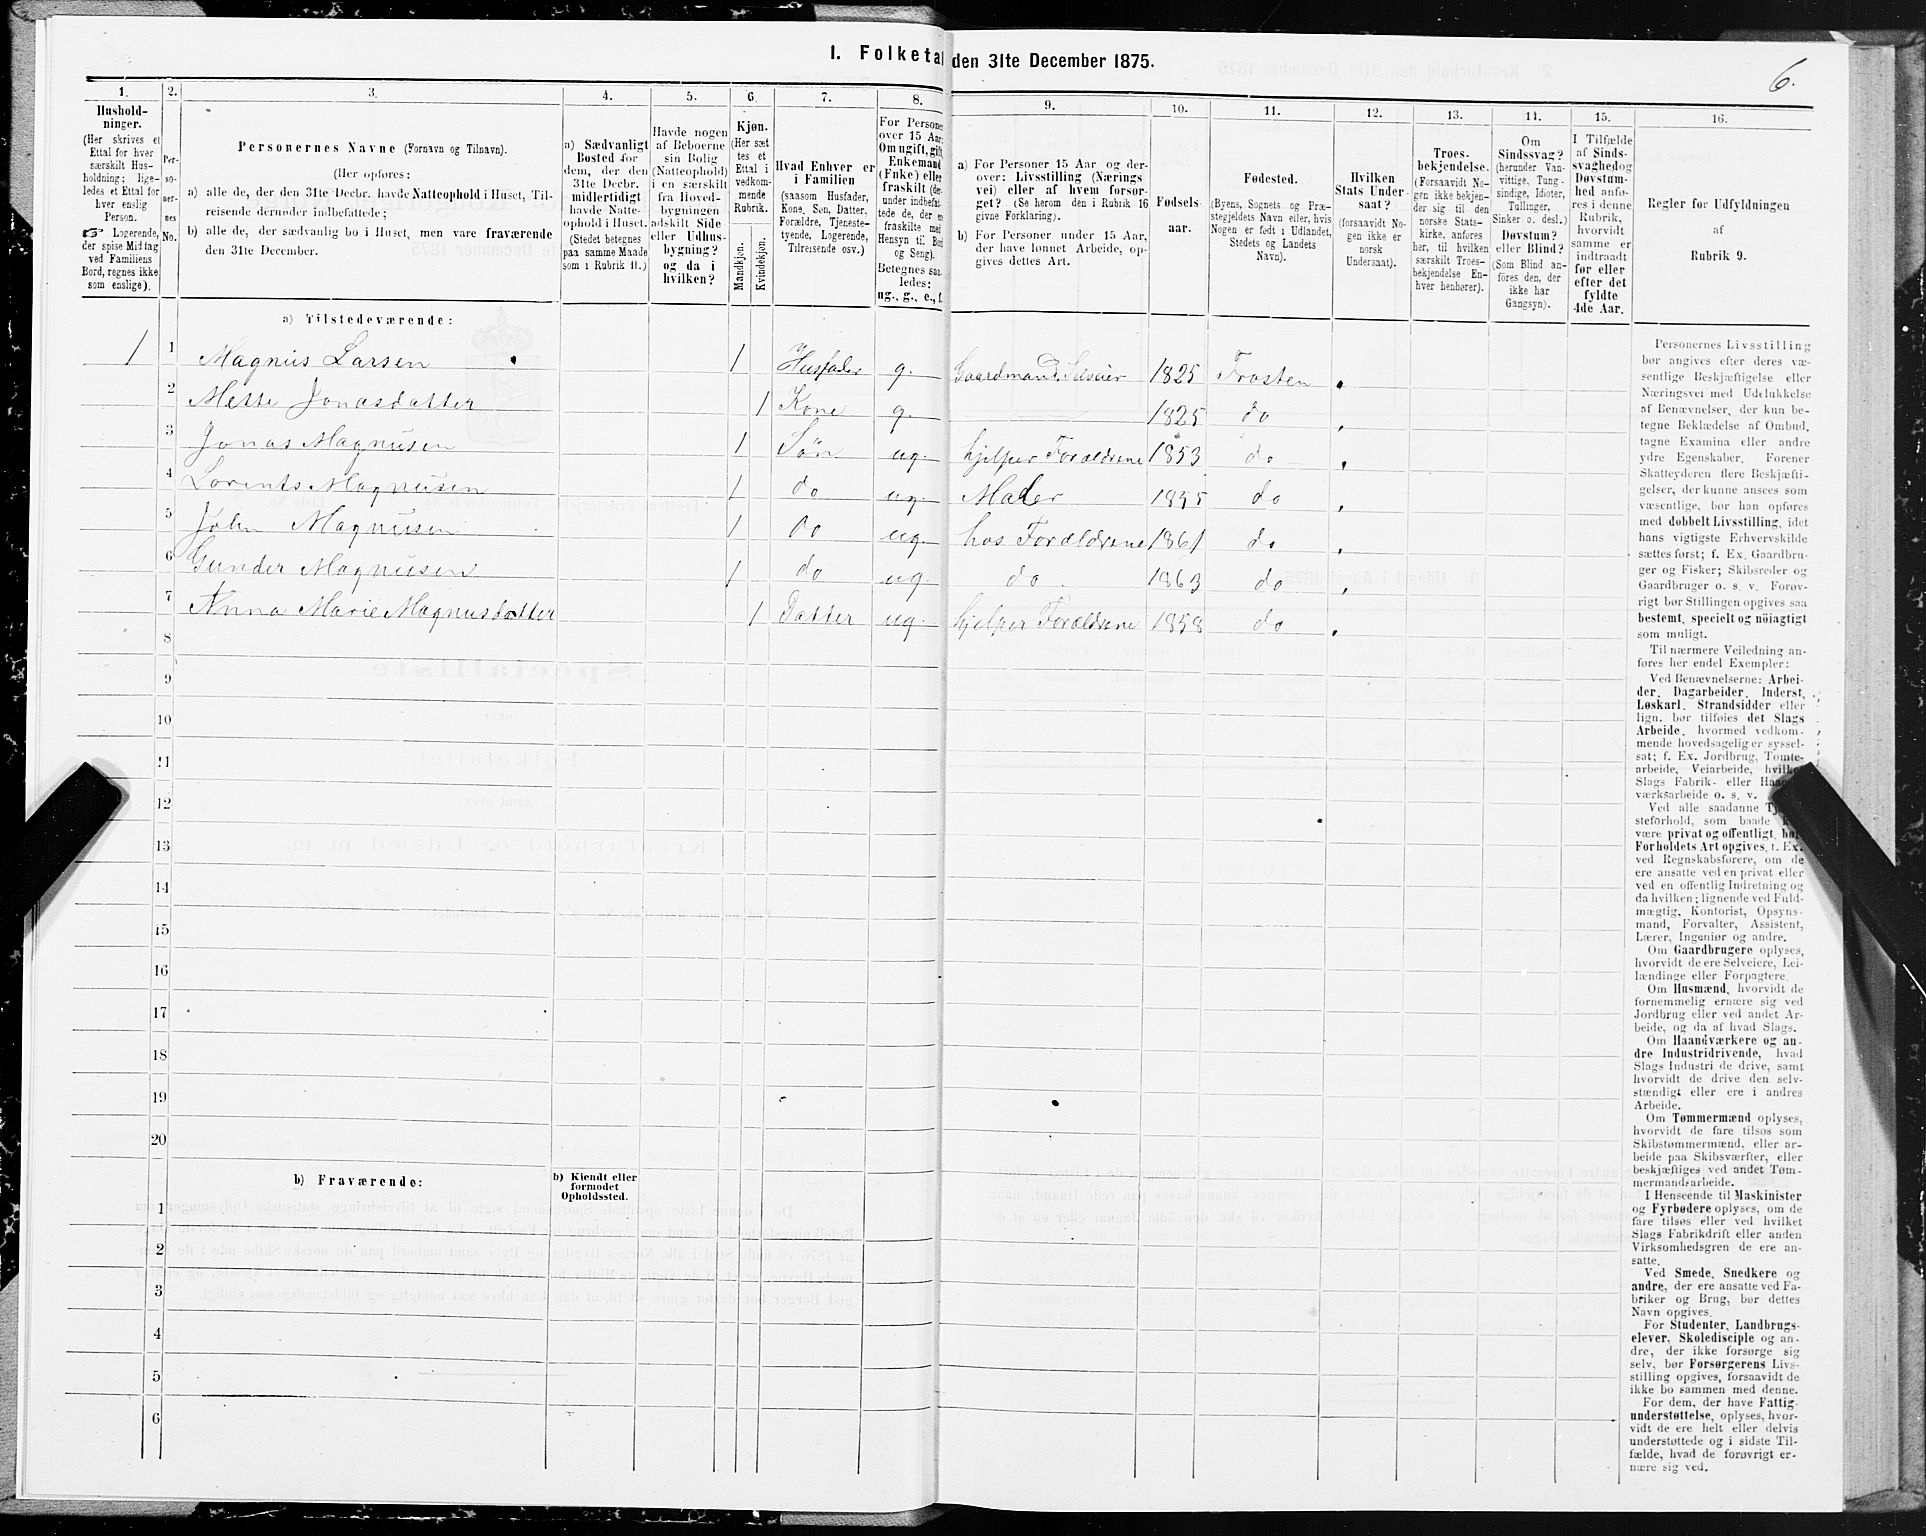 I. Folketal den 31te December 1875.
6.
1.
2.
3.
4.
5.
6.
7.
8.
9.
10.
11.
12.
13.
14.
15.
16.
Hushold-
ninger.
(Her skrives et
Ettal for hver
særskilt Hus-
holdning; lige-
ledes et Ettal for
hver enslig
Person.
☞ Logerende,
der spise Middag
ved Familiens
Bord, regnes ikke
som enslige).
Per-
so-
ner-
nes
No.
Personernes Navne (Fornavn og Tilnavn).
(Her opføres:
a) alle de, der den 31te Decbr. havde Natteophold i Huset, Til-
reisende derunder indbefattede;
b) alle de, der sædvanlig bo i Huset, men vare fraværende
den 31te December.
a) Sædvanligt
Bosted for
dem, der den
31te Decbr.
midlertidigt
havde Natte-
ophold i Huset.
(Stedet betegnes
paa samme Maade
som i Rubrik 11.)
Havde nogen
af Beboerne
sin Bolig
(Natteophold)
i en særskilt
fra Hoved-
bygningen
adskilt Side
eller Udhus-
bygning?
og da i
hvilken?
Kjøn.
(Her sæt
tes et
Ettal i
vedkom-
mende
Rubrik.
Mandkjøn.
Kvindekjøn.
Hvad Enhver er
i Familien
(saasom Husfader,
Kone, Søn, Datter,
Forældre, Tjeneste-
tyende, Logerende,
Tilreisende osv.)
For Personer
over 15 Aar:
Om ugift, gift,
Enkemand
(Enke) eller
fraskilt (der-
under indbefat-
tede de, der ere
fraskilte med
Hensyn til Bord
og Seng).
Betegnes saa-
ledes:
ug., g., e., f.
a) For Personer 15 Aar og der-
over: Livsstilling (Nærings
vei) eller af hvem forsør-
get? (Se herom den i Rubrik 16
givne Forklaring).
b) For Personer under 15 Aar,
der have lønnet Arbeide, op-
gives dettes Art.
Fødsels-
aar.
Fødested.
(Byens, Sognets og Præ-
stegjeldets Navn eller, hvis
Nogen er født i Udlandet,
Stedets og Landets
Navn).
Hvilken
Stats Under-
saat?
(forsaavidt No-
gen ikke er
norsk
Undersaat).
Troes-
bekjendelse.
(Forsaavidt No-
gen ikke bekjen-
der sig til den
norske Stats-
kirke, anføres
her, til hvilken
særskilt Troes-
bekjendelse En-
hver henhører).
Om
Sindssvag?
(herunder Van-
vittige, Tung-
sindige, Idioter,
Tullinger,
Sinker o. desl.)
Døvstum?
eller Blind?
(Som Blind an-
føres den, der
ikke har
Gangsyn).
I Tilfælde
af Sinds-
svaghed og
Døvstum-
hed anfø-
res i denne
Rubrik,
hvorvidt
samme er
indtraadt
før eller
efter det
fyldte
4de Aar.
Regler for Udfyldningen
af
Rubrik 9.
a) Tilstedeværende:
1 1 Magnus Larsen 1 Husfader g. Gaardmand, Selveier 1825 Frosten
2 Mette Jonasdatter 1 Kone g. 1825 do
3 Jonas Magnusen 1 Søn ug. hjelper Forældrene 1853 do
4 Lorents Magnusen 1 do ug. Maler 1855 do
5 John Magnusen 1 do ug. hos Forældrene 1861 do
6 Gunder Magnusen 1 do ug. do 1863 do
7 Anna Marie Magnusdatter 1 Datter ug. hjelper Forældrene 1858 do
8
9
10
11
12
13
14
15
16
17
18
19
20
b) Fraværende:
b) Kjendt eller
formodet
Opholdssted.
1
2
3
4
5
6
Personernes Livsstilling
bør angives efter deres væ-
sentlige Beskjæftigelse eller
Næringsvei med Udelukkelse
af Benævnelser, der kun be-
tegne Beklædelse af Ombud,
tagne Examina eller andre
ydre Egenskaber. Forener
Skatteyderen flere Beskjæfti-
gelser, der kunne ansees som
væsentlige, bør han opføres
med dobbelt Livsstilling, idet
hans vigtigste Erhvervskilde
sættes først; f. Ex. Gaardbru-
ger og Fisker; Skibsreder og
Gaardbruger o. s. v. Forøv-
rigt bør Stillingen opgives saa
bestemt, specielt og nöiagtigt
som muligt.
Til nærmere Veiledning an-
føres her endel Exempler:
Ved Benævnelserne: Arbei-
der, Dagarbeider, Inderst,
Løskarl, Strandsidder eller
lign. bør tilføies det Slags
Arbeide, hvormed vedkom-
mende hovedsagelig er syssel-
sat; f. Ex. Jordbrug, Tomte-
arbeide, Veiarbeide, hvilket
Slags Fabrik- eller Haand-
værksarbeide o. s. v.
Ved alle saadanne Tje-
steforhold, som baade kan
være privat og offentligt, bør
Forholdets Art opgives, f. Ex.
ved Regnskabsførere, om de
ere ansatte ved en privat eller
ved en offentlig Indretning og
da hvilken; lignende ved Fuld-
mægtig, Kontorist, Opsyns-
mand, Forvalter, Assistent,
Lærer, Ingeniør og andre.
Om Gaardbrugere oplyses,
hvorvidt de ere Selveiere, Lei-
lændinge eller Forpagtere.
Om Husmænd, hvorvidt de
fornemmelig ernære sig ved
Jordbrug eller ved andet Ar-
beide, og da af hvad Slags.
Om Haandværkere og an-
dre Industridrivende, hvad
Slags Industri de drive, samt
hvorvidt de drive den selv-
stændigt eller ere i andres
Arbeide.
Om Tømmermænd oplyses,
hvorvidt de fare tilsøs som
Skibstømmermænd, eller ar-
beide paa Skibsværfter, eller
beskjæftiges ved andet Tøm-
mermandsarbeide.
I Henseende til Maskinister
og Fyrbødere oplyses, om de
fare tilsøs eller ved hvilket
Slags Fabrikdrift eller anden
Virksomhedsgren de ere an-
satte.
Ved Smede, Snedkere og
andre, der ere ansatte ved Fa-
briker og Brug, bør dettes
Navn opgives.
For Studenter, Landbrugs-
elever, Skoledisciple og an-
dre, der ikke forsørge sig
selv, bør Forsørgerens Livs-
stilling opgives, forsaavidt de
ikke bo sammen med denne.
For dem, der have Fattig-
understøttelse, oplyses, hvor-
vidt de ere helt eller delvis
understøttede og i sidste Til-
fælde, hvad de forøvrigt er-
nære sig ved.